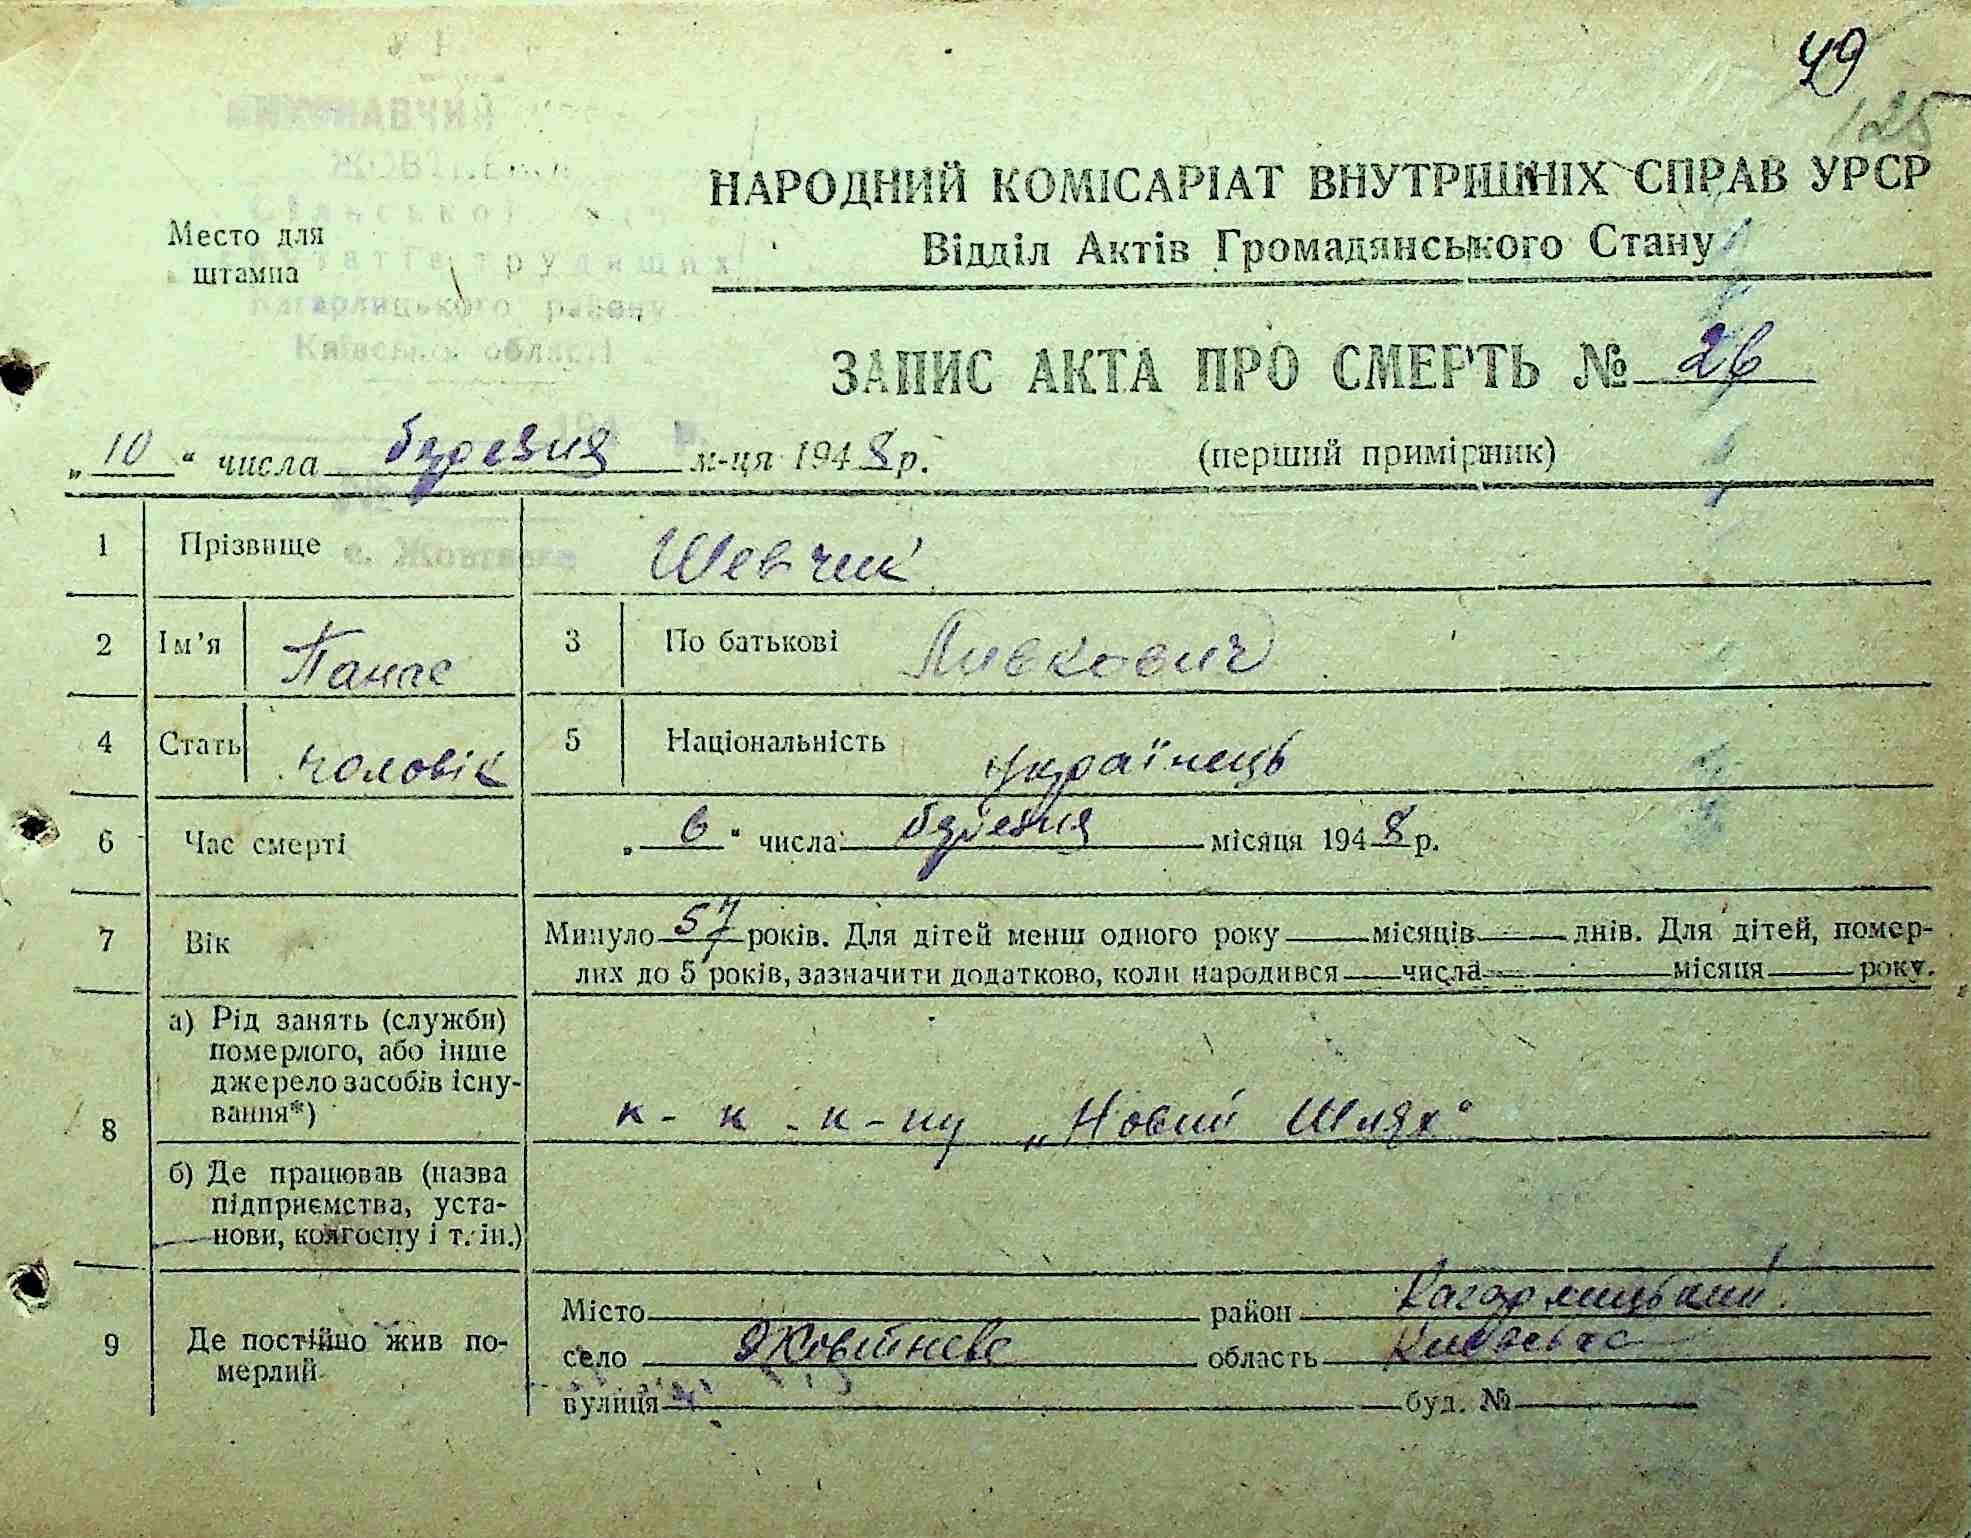 49
125
ВИКОНАВЧИЙ
НАРОДНИЙ КОМІСАРІАТ ВНУТРІШНІХ СПРАВ УРСР
Відділ Актів Громадянського Стану
Место для
штампа
трудящих
Кагарлицького району
Київської області
ЗАПИС АКТА ПРО СМЕРТЬ № 26
„10“ числа березня м-ця 1948 р. (перший примірник)
с. Жовтневе
1 Прізвище Шевчик
2 Ім'я Панас 3 По батькові Пивкович
4 Стать чоловік 5 Національність українець
6 Час смерті „6“ числа березня місяця 1948 р.
7 Вік Минуло 57 років. Для дітей менш одного року місяців днів. Для дітей, помер-
лих до 5 років, зазначити додатково, коли народився числа місяця року.
8 а) Рід занять (служби)
померлого, або інше
джерело засобів існу-
вання*)
к-к к-пу „Новий Шлях“
б) Де працював (назва
підприємства, уста-
нови, колгоспу і т. ін.)
9 Де постійно жив по-
мерлий
Місто район Кагарлицький
село Жовтневе область Київська
вулиця буд. №